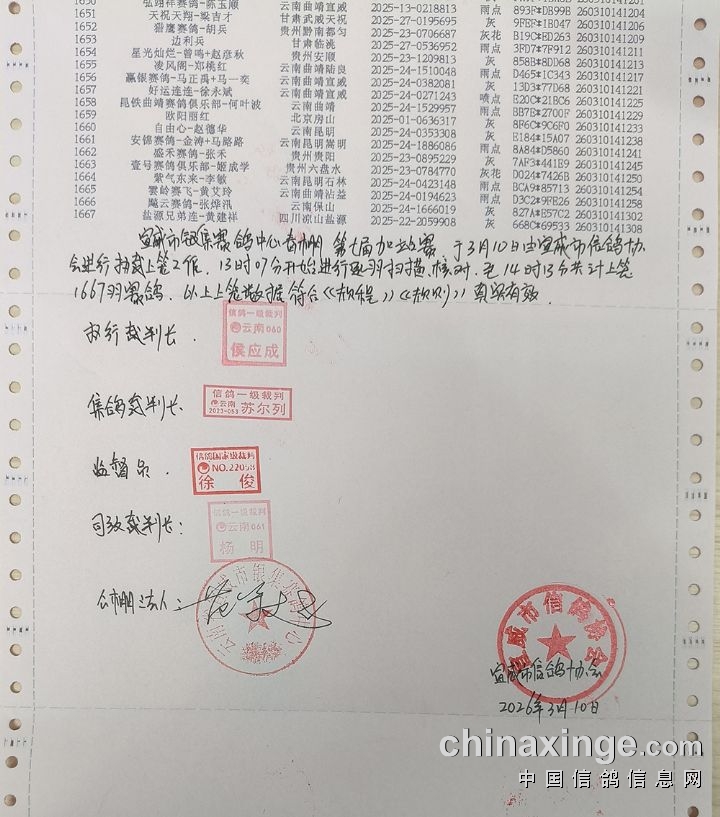 1650 弘翊祥赛鸽-陈玉顺 云南曲靖宣威 2025-13-0218813 雨点 893F*DB99B 260310141204
1651 天祝天翔-梁吉才 甘肃武威天祝 2025-27-0195695 灰 9FEF*1B047 260310141206
1652 猎鹰赛鸽-胡兵 贵州黔南都匀 2025-23-0706687 灰花 B19C*BD263 260310141208
1653 边利兵 甘肃临洮 2025-27-0536952 雨点 3FD7*7F912 260310141209
1654 星光灿烂-曾鸣+赵彦秋 贵州安顺 2025-23-1209813 灰 858B*8DD68
1655 凌风阁-郑桃红 云南曲靖陆良 2025-24-1510048 雨点 D465*1C343
1656 赢银赛鸽-马正禹+马一奕 云南曲靖宣威 2025-24-0382081 灰 13D3*77D68 260310141221
1657 好运连连-徐永斌 云南曲靖宣威 2025-24-0271243 喷点 E20C*21BC6
1658 昆铁曲靖赛鸽俱乐部-何叶波 云南曲靖 2025-24-1529957 雨点 BB7B*2700F 260310141228
1659 欧阳丽红 北京房山 2025-01-0636317 灰 8F6C*9C6F0 260310141233
1660 自由心-赵德华 云南昆明 2025-24-0353308 灰 E184*15A07 260310141238
1661 安锦赛鸽-金涛+马路路 云南昆明嵩明 2025-24-1886086 雨点 8A84*D5860 260310141241
1662 盛禾赛鸽-张禾 贵州贵阳 2025-23-0895229 灰 7AF3*441B9 260310141245
1663 壹号赛鸽俱乐部-姬成学 贵州六盘水 2025-23-0784770 灰花 D024*7426B 260310141250
1664 紫气东来-李敏 云南昆明石林 2025-24-0423148 雨点 BCA9*85713 260310141251
1665 雲岭赛飞-黄艾玲 云南曲靖沾益 2025-24-0194623 雨点 D3C2*9FE26 260310141253
1666 飚云赛鸽-张烨汛 云南保山 2025-24-1666019 灰 827A*E57C2 260310141268
1667 盐源兄弟连-黄建祥 四川凉山盐源 2025-22-2059908 雨点 A55B*03948 260310141300
宣威市银集赛鸽中心公棚 第七届加站赛 于3月10日由宣威市信鸽协
会进行扫描上笼工作. 13时07分开始进行验羽扫描核对. 至14时13分共计上笼
1667羽赛鸽. 以上上笼数据符合《规程》《规则》真实有效.
执行裁判长.
信鸽一级裁判
云南060
侯应成
集鸽裁判长.
信鸽一级裁判
云南
2023-053 苏尔列
监督员.
信鸽国家级裁判
NO.22058
徐 俊
司放裁判长:
信鸽一级裁判
云南061
杨 明
公棚法人:
宣威市信鸽协会
宣威市信鸽协会
2026年3月10日
chinaxinge.com
中国信鸽信息网